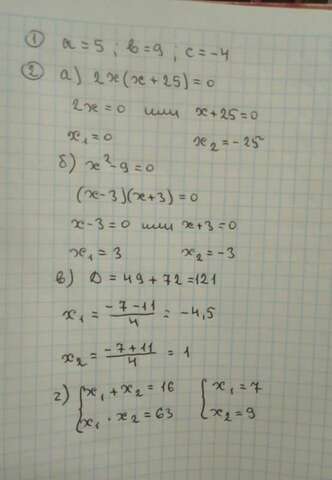 ① a=5 ; b=9 ; c=-4
② а) 2x(x+25)=0
2x=0 или x+25=0
x₁=0 x₂=-25
б) x²-9=0
(x-3)(x+3)=0
x-3=0 или x+3=0
x₁=3 x₂=-3
в) D=49+72=121
x₁=(-7-11)/4=-4,5
x₂=(-7+11)/4=1
г) {x₁+x₂=16 {x₁=7
x₁·x₂=63 x₂=9